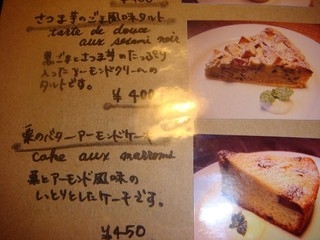 さつま芋のごま風味タルト
tarte de douce
aux sesami noir
黒ごまとさつま芋のたっぷり
入ったアーモンドクリームの
タルトです。
¥400
栗のバターアーモンドケーキ
cake aux marrons
栗とアーモンド風味の
しっとりとしたケーキです。
¥450